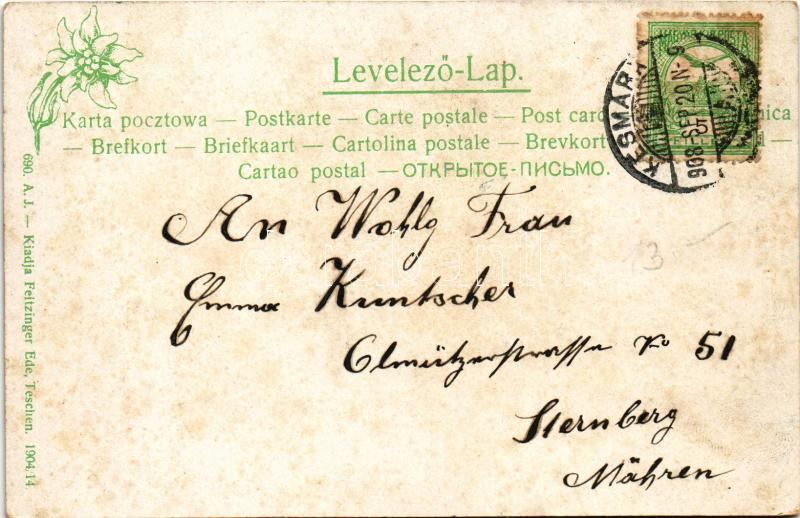 Levelező-Lap.
Karta pocztowa — Postkarte — Carte postale — Post card
— Brefkort — Briefkaart — Cartolina postale — Brevkort
Cartao postal — ОТКРЫТОЕ-ПИСЬМО.
KÉSMÁRK
908 SEP 20 N-9
An Wohlg Frau
Emma Kuntscher
Olmützerstrasse No 51
Sternberg
Mähren
690. A. J. — Kiadja Feitzinger Ede, Teschen. 1904.14.